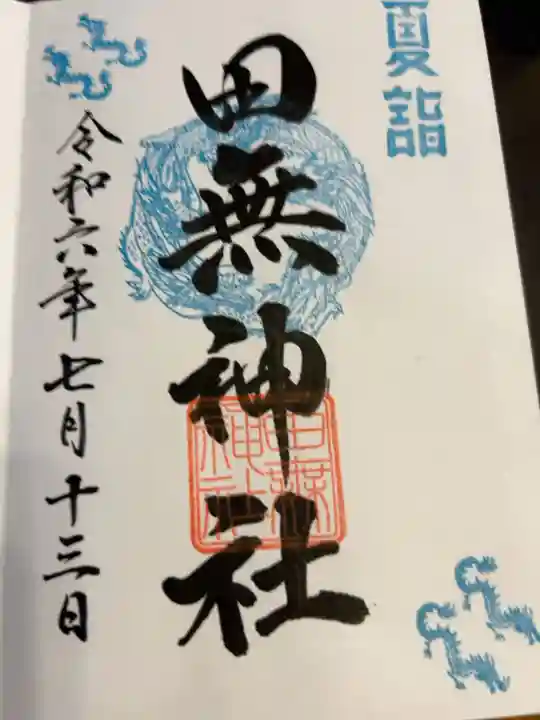 夏詣
田無神社
令和六年七月十三日
田無神社